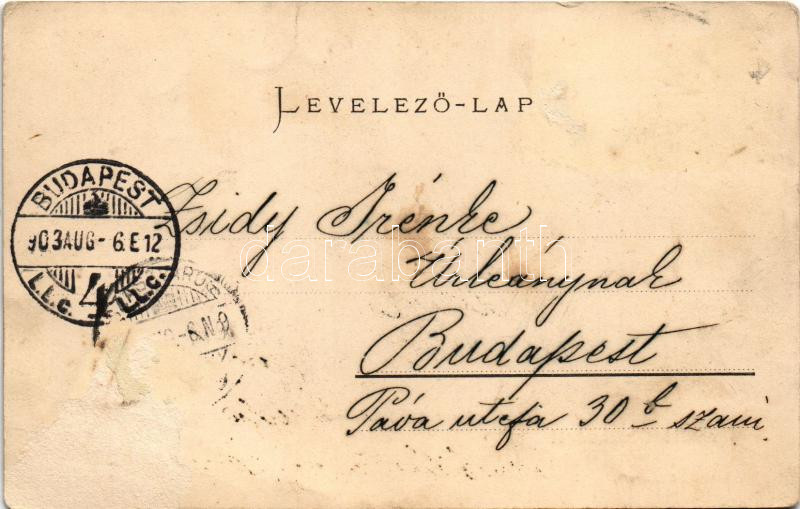 LEVELEZŐ-LAP
BUDAPEST
903 AUG - 6. E 12
4
I.I.C.
I.I.C.
Zsidy Irénke
Úrleánynak
Budapest
Páva utcza 30 b szám
-6.N
darabanth